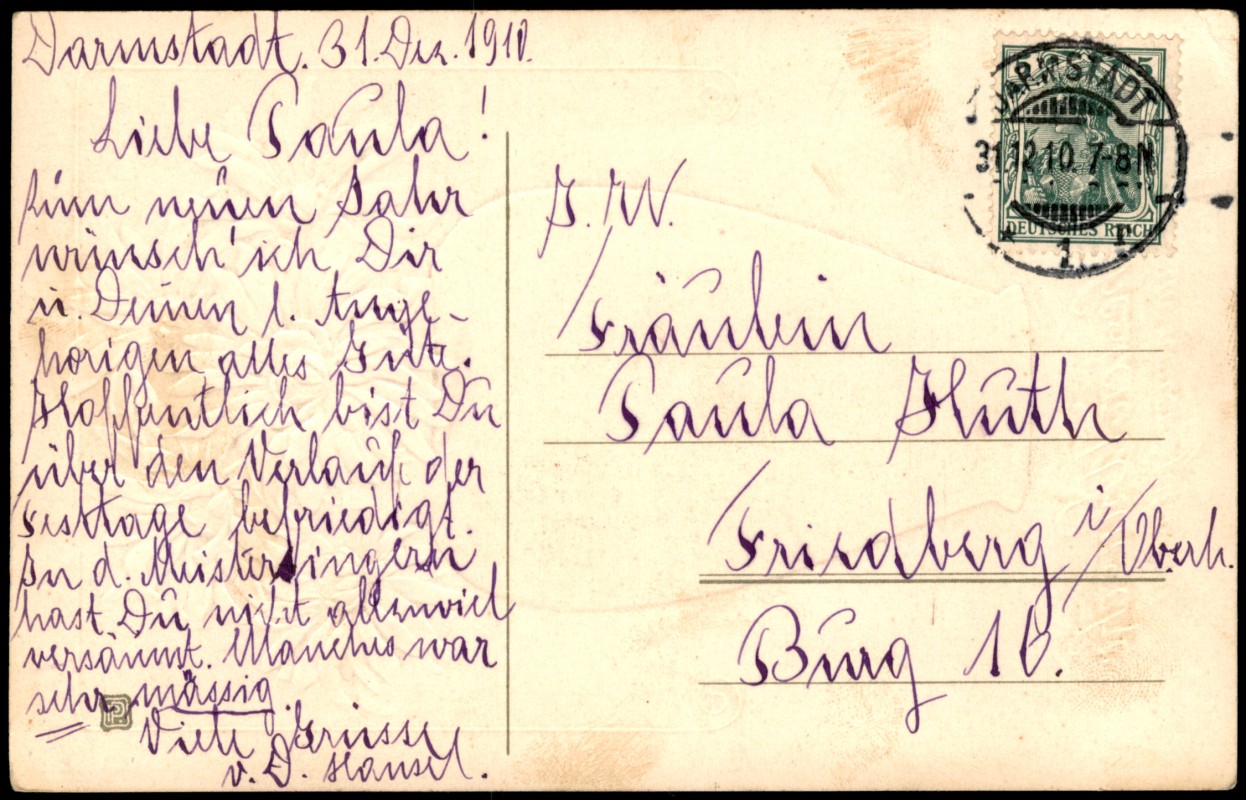 Darmstadt. 31. Dez. 1910.
Liebe Paula!
Zum neuen Jahr
wünsch' ich Dir
u. Deinen l. Ange-
hörigen alles Gute.
Hoffentlich bist Du
über den Verlauf der
Festtage befriedigt.
In d. Meistersingern
hast Du nicht allzuviel
versäumt. Manches war
sehr mässig.
Viele Grüsse
v. D. Hansel.
DARMSTADT
31.12.10. 7-8N
* 1
5
DEUTSCHES REICH
I. W.
Fräulein
Paula Huth
Friedberg i/Oberh.
Burg 10.